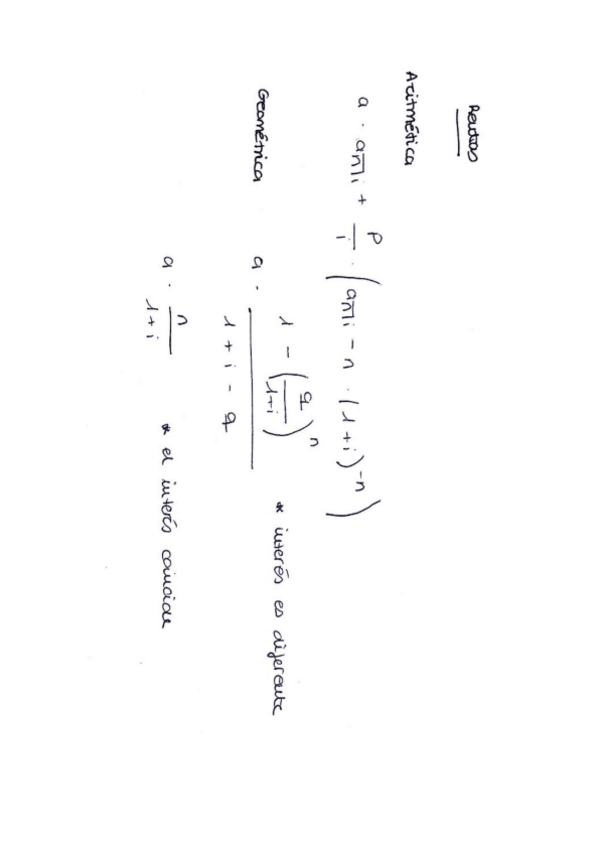 Rentas
Aritmética
a · a n̅| i + p/i · (a n̅| i − n · (1+i)^−n)
Geométrica a · (1 − (q/(1+i))^n)/(1 + i − q) * interés es diferente
a · n/(1+i) * el interés coincide